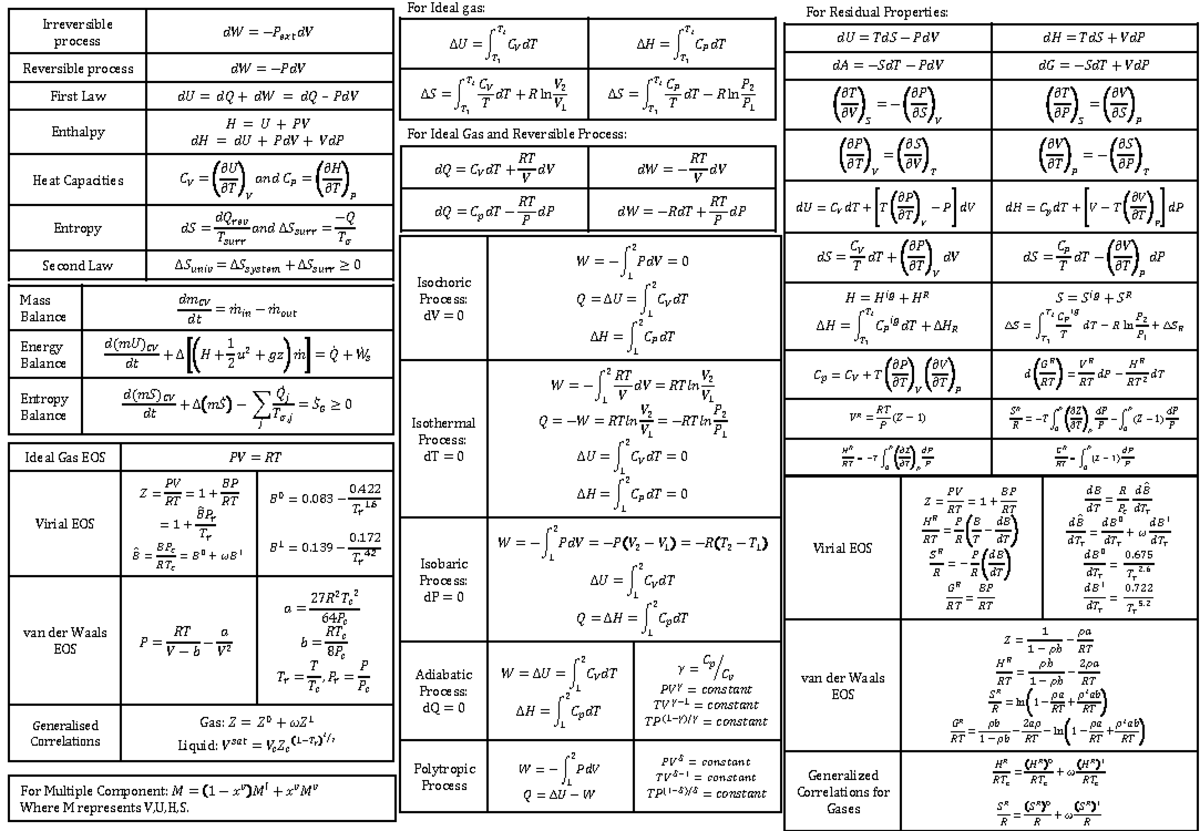 Irreversible process dW = −P_ext dV
Reversible process dW = −PdV
First Law dU = dQ + dW = dQ - PdV
Enthalpy H = U + PV
dH = dU + PdV + VdP
Heat Capacities C_V = (∂U/∂T)_V and C_P = (∂H/∂T)_P
Entropy dS = dQ_rev/T_surr and ΔS_surr = −Q/T_σ
Second Law ΔS_univ = ΔS_system + ΔS_surr ≥ 0
Mass Balance dm_CV/dt = ṁ_in − ṁ_out
Energy Balance d(mU)_CV/dt + Δ[(H + 1/2 u² + gz) ṁ] = Q̇ + Ẇ_s
Entropy Balance d(mS)_CV/dt + Δ(mṠ) − ∑_j Q̇_j/T_σ,j = Ṡ_G ≥ 0
Ideal Gas EOS PV = RT
Virial EOS
Z = PV/RT = 1 + BP/RT
= 1 + B̂P_r/T_r
B̂ = BP_c/RT_c = B⁰ + ωB¹
B⁰ = 0.083 − 0.422/T_r^1.6
B¹ = 0.139 − 0.172/T_r^4.2
van der Waals EOS
P = RT/(V − b) − a/V²
a = 27R²T_c²/64P_c
b = RT_c/8P_c
T_r = T/T_c, P_r = P/P_c
Generalised Correlations
Gas: Z = Z⁰ + ωZ¹
Liquid: V^sat = V_c Z_c^(1−T_r)^2/7
For Multiple Component: M = (1 − x^v)M^l + x^v M^v
Where M represents V,U,H,S.
For Ideal gas:
ΔU = ∫_T₁^T₂ C_V dT ΔH = ∫_T₁^T₂ C_P dT
ΔS = ∫_T₁^T₂ C_V/T dT + R ln V₂/V₁ ΔS = ∫_T₁^T₂ C_P/T dT − R ln P₂/P₁
For Ideal Gas and Reversible Process:
dQ = C_V dT + RT/V dV dW = −RT/V dV
dQ = C_p dT − RT/P dP dW = −RdT + RT/P dP
Isochoric Process: dV = 0
W = −∫₁² PdV = 0
Q = ΔU = ∫₁² C_V dT
ΔH = ∫₁² C_P dT
Isothermal Process: dT = 0
W = −∫₁² RT/V dV = RT ln V₂/V₁
Q = −W = RT ln V₂/V₁ = −RT ln P₂/P₁
ΔU = ∫₁² C_V dT = 0
ΔH = ∫₁² C_P dT = 0
Isobaric Process: dP = 0
W = −∫₁² PdV = −P(V₂ − V₁) = −R(T₂ − T₁)
ΔU = ∫₁² C_V dT
Q = ΔH = ∫₁² C_p dT
Adiabatic Process: dQ = 0
W = ΔU = ∫₁² C_V dT
ΔH = ∫₁² C_p dT
γ = C_p/C_v
PV^γ = constant
TV^γ−1 = constant
TP^(1−γ)/γ = constant
Polytropic Process
W = −∫₁² PdV
Q = ΔU − W
PV^δ = constant
TV^δ−1 = constant
TP^(1−δ)/δ = constant
For Residual Properties:
dU = TdS − PdV dH = TdS + VdP
dA = −SdT − PdV dG = −SdT + VdP
(∂T/∂V)_S = −(∂P/∂S)_V (∂T/∂P)_S = (∂V/∂S)_P
(∂P/∂T)_V = (∂S/∂V)_T (∂V/∂T)_P = −(∂S/∂P)_T
dU = C_V dT + [T(∂P/∂T)_V − P] dV dH = C_p dT + [V − T(∂V/∂T)_P] dP
dS = C_V/T dT + (∂P/∂T)_V dV dS = C_p/T dT − (∂V/∂T)_P dP
H = H^ig + H^R
ΔH = ∫_T₁^T₂ C_P^ig dT + ΔH_R
S = S^ig + S^R
ΔS = ∫_T₁^T₂ C_P^ig/T dT − R ln P₂/P₁ + ΔS_R
C_p = C_V + T(∂P/∂T)_V (∂V/∂T)_P d(G^R/RT) = V^R/RT dP − H^R/RT² dT
V^R = RT/P (Z − 1) S^R/R = −T∫₀^P (∂Z/∂T)_P dP/P − ∫₀^P (Z − 1) dP/P
H^R/RT = −T∫₀^P (∂Z/∂T)_P dP/P G^R/RT = ∫₀^P (Z − 1) dP/P
Virial EOS
Z = PV/RT = 1 + BP/RT
H^R/RT = P/R (B/T − dB/dT)
S^R/R = −P/R (dB/dT)
G^R/RT = BP/RT
dB/dT = R/P_c dB̂/dT_r
dB̂/dT_r = dB⁰/dT_r + ω dB¹/dT_r
dB⁰/dT_r = 0.675/T_r^2.6
dB¹/dT_r = 0.722/T_r^5.2
van der Waals EOS
Z = 1/(1 − ρb) − ρa/RT
H^R/RT = ρb/(1 − ρb) − 2ρa/RT
S^R/R = ln(1 − ρa/RT + ρ²ab/RT)
G^R/RT = ρb/(1 − ρb) − 2aρ/RT − ln(1 − ρa/RT + ρ²ab/RT)
Generalized Correlations for Gases
H^R/RT_c = (H^R)⁰/RT_c + ω(H^R)¹/RT_c
S^R/R = (S^R)⁰/R + ω(S^R)¹/R